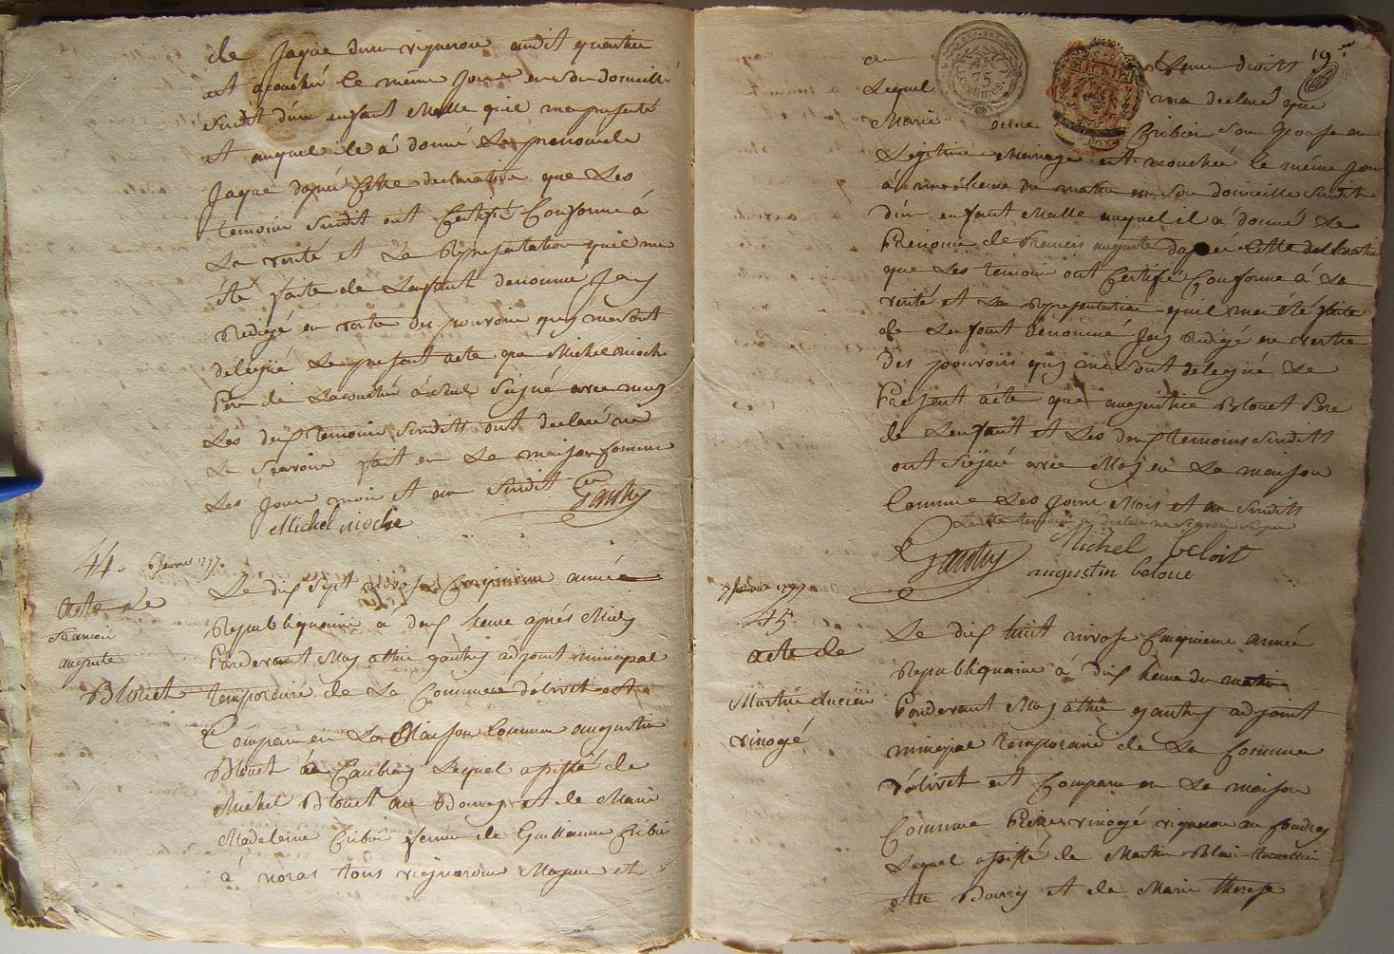 de Jaque dune vigneron audit quartier
est acouchée le même jour en son domeille
Susdit d'un enfant Malle quil ma presenté
et auquel il à donné Le prenom de
Jaque daprés cette declaration que Les
temoins Susdit ont Certifié Conforme à
La verité et La Representation quil ma
été faite de Lenfant denommé Jay
Redigé en vertu des pouvoirs quy me sont
delegué Le present acte que Michel nioche
Pere de Signé avec moy
Les deux temoins Susdits ont declaré ne
Le Scavoir fait en La maison Commune
Les jour mois et an Susdit
Michel nioche Gauthy
44. 6 Janvier 1797.
acte de
francois
auguste
Blouet
Le dix Sept nivose Cinquieme année
Republiquaine à deux heure aprés Midy
Pardevant Moy athie gauthy adjoint municipal
temporaire de La Commune dolivet est
Comparu en La Maison Commune augustin
Blouet à Caubray Lequel assisté de
Michel Blouet au Bourg et de Marie
Madeleine Cribier femme de Guillaume Cribier
à noras tous vigneron Majeur et
19
Leurs droits
Lequel ma declaré que
Marie anne Cribier son Epouse en
Legitime Mariage est acouchée le même jour
à heure du matin en son domeille Susdit
d'un enfant Malle auquel il à donné Le
Prenom de francois auguste daprés cette declaration
que Les temoin ont Certifié Conforme à La
verité et La Representation quil ma été faite
de Lenfant denommé Jay Redigé en vertu
des pouvoirs quy me sont delegué Le
Present acte que augustin Blouet Pere
de Lenfant et Les deux temoins Susdits
ont Signé avec Moy en La maison
Commune Les jour Mois et an Susdits
Gauthy Michel beloit
augustin beloue
7 Janvier 1797
45.
acte de
Martin Lucien
vinogé
Le dix huit nivose Cinquieme année
Republiquaine à dix heure du matin
Pardevant Moy athie gauthy adjoint
municipal temporaire de La Commune
d'olivet est Comparu en La maison
Commune Pierre vinoge vigneron au
Lequel assisté de Martin Blain
Au Bourg et de Marie therese